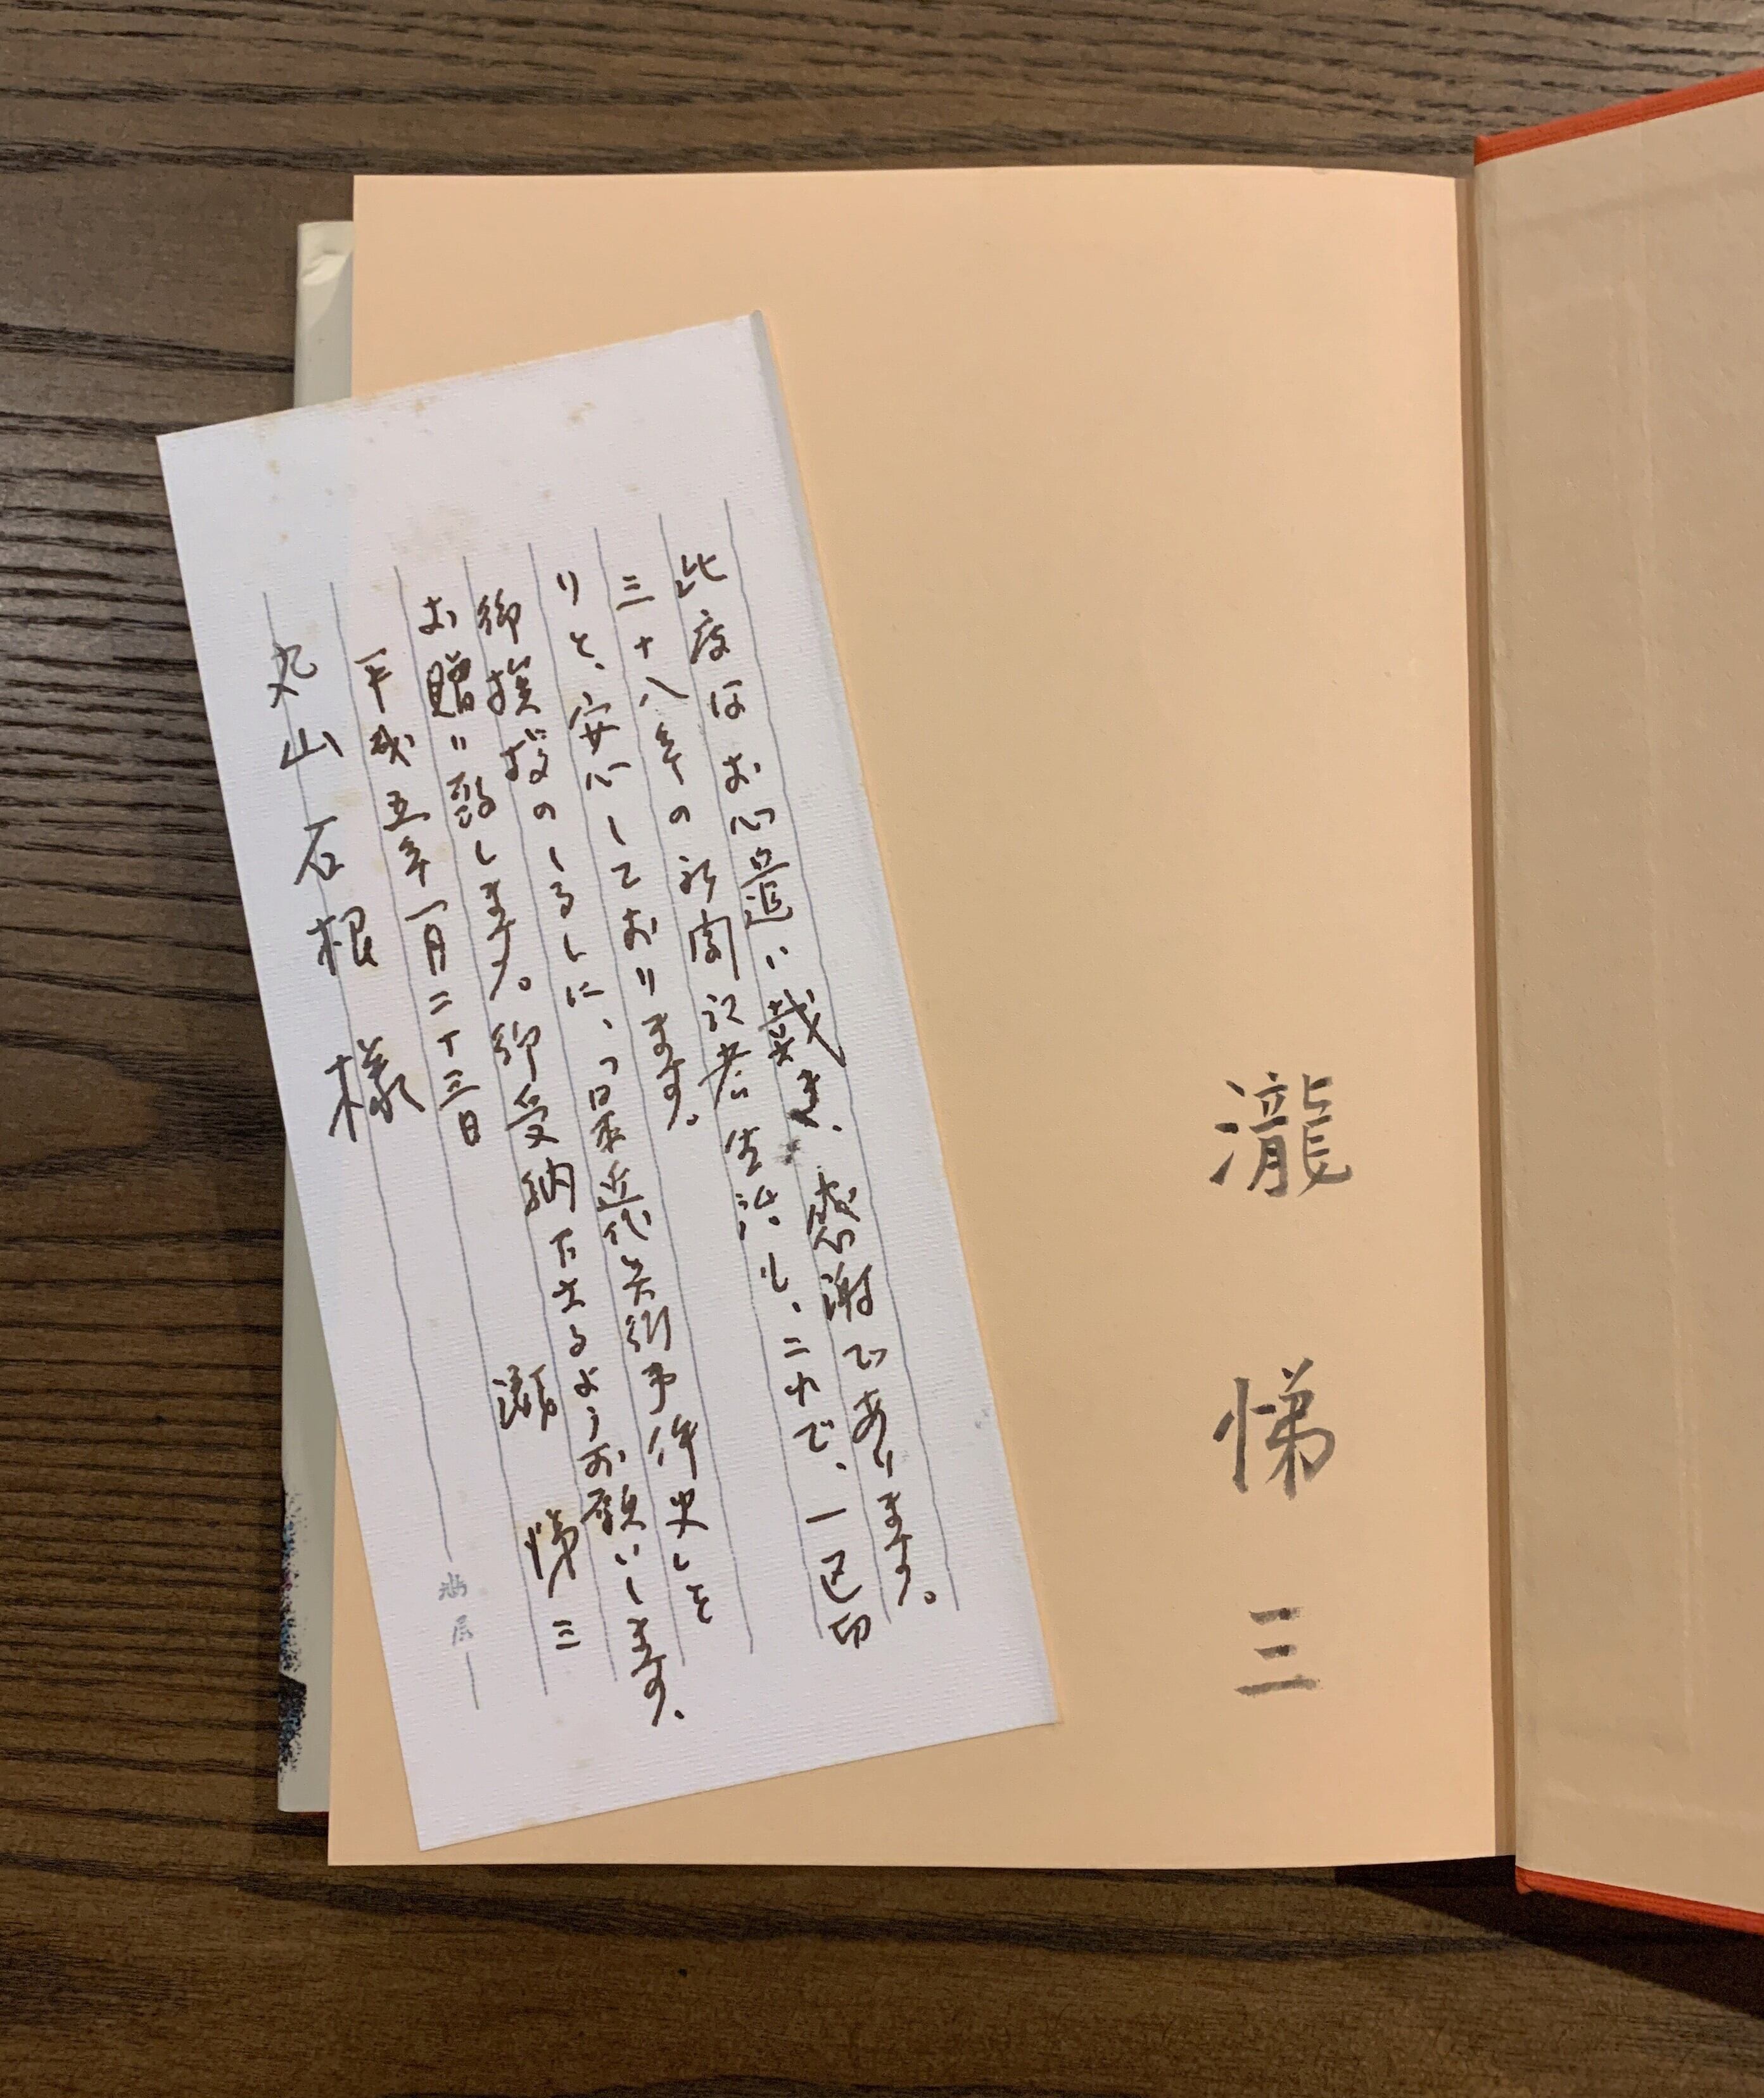 瀧 悌 三
此度はお心遣い戴き、であります。
三十八年の新聞記者生活も、これで、一区切
りと、安心しております。
御挨拶のしるしに、「日本近代美術事件史」を
お贈り致します。御受納下さるようお願いします。
平成五年一月二十三日
瀧 悌三
丸山石根様